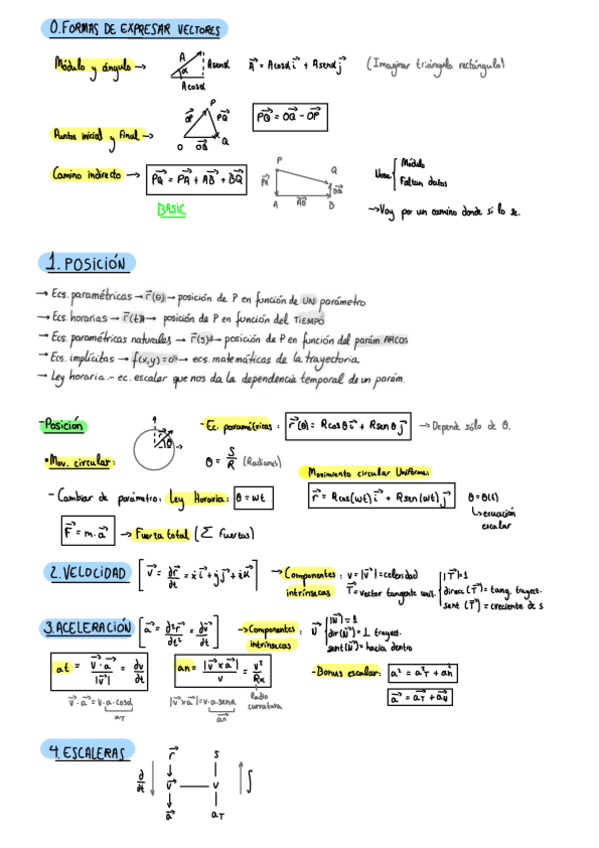 0.FORMAS DE EXPRESAR VECTORES
Módulo y ángulo → A α Asenα Acosα A⃗ = Acosα i⃗ + Asenα j⃗ (Imaginar triángulo rectángulo)
Puntos inicial y final → P OP⃗ PQ⃗ O OQ⃗ Q PQ⃗ = OQ⃗ - OP⃗
Camino indirecto → PQ⃗ = PA⃗ + AB⃗ + BQ⃗ P Q PA⃗ BQ⃗ A AB⃗ B
Módulo
Faltan datos
BASIC
→ Voy por un camino donde si lo se.
1. POSICIÓN
→ Ecs. paramétricas → r⃗(θ) → posición de P en función de UN parámetro
→ Ecs. horarias → r⃗(t) → posición de P en función del TIEMPO
→ Ecs. paramétricas naturales → r⃗(s) → posición de P en función del parám. ARCOS
→ Ecs. implícitas → f(x,y)=0 → ecs. matemáticas de la trayectoria
→ Ley horaria.- ec. escalar que nos da la dependencia temporal de un parám.
-Posición
- Ec. paramétricas: r⃗(θ) = Rcosθ i⃗ + Rsenθ j⃗ → Depende sólo de θ.
• Mov. circular: θ = S/R (Radianes)
Movimiento circular Uniforme:
- Cambiar de parámetro: Ley Horaria: θ = ωt
r⃗ = Rcos(ωt) i⃗ + Rsen(ωt) j⃗ θ = θ(t)
↳ ecuación escalar
F⃗ = m·a⃗ → Fuerza total (Σ Fuerzas)
2. VELOCIDAD [v⃗ = dr⃗/dt = ẋ i⃗ + ẏ j⃗ + ż k⃗] → Componentes intrínsecas: v = |v⃗| = celeridad
T⃗ = vector tangente unit.
|T⃗| = 1
direcc (T⃗) = tang. trayect.
sent (T⃗) = creciente de s
3. ACELERACIÓN [a⃗ = d²r⃗/dt² = dv⃗/dt] → Componentes intrínsecas: N⃗
|N⃗| = 1
dir(N⃗) = ⊥ trayect.
sent(N⃗) = hacia dentro
at = v⃗·a⃗/|v⃗| = dv/dt
an = |v⃗xa⃗|/v = v²/Rk
Radio curvatura
- Bonus escalar: a² = a²T + an²
a⃗ = a⃗T + a⃗N
v⃗·a⃗ = v·a·cosα
aT
|v⃗xa⃗| = v·a·senα
an
4. ESCALERAS
r⃗ s
d/dt v⃗ v ∫
a⃗ aT